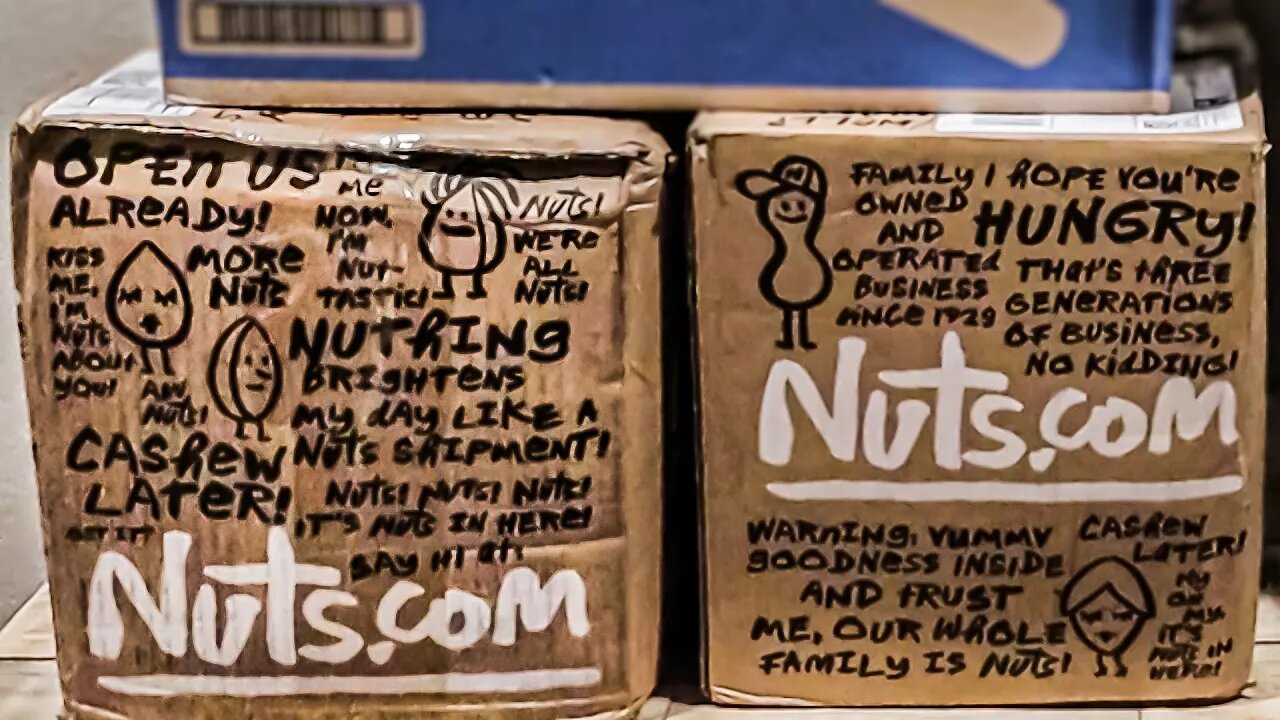 OPEN US
ALREADY!
KISS
ME,
I'M
NUTS
ABOUT
YOU!
MORE
NUTS
ME
NOW,
I'M
NUT-
TASTIC!
NUTS!
WE'RE
ALL
NUTS!
AW
NUTS!
NUTHING
BRIGHTENS
MY DAY LIKE A
NUTS SHIPMENT!
CASHEW
LATER!
GET IT?
NUTS! NUTS! NUTS!
IT'S NUTS IN HERE!
SAY HI AT:
Nuts.com
FAMILY
OWNED
AND
OPERATED
BUSINESS
SINCE 1929
I HOPE YOU'RE
HUNGRY!
THAT'S THREE
GENERATIONS
OF BUSINESS,
NO KIDDING!
Nuts.com
WARNING: YUMMY
GOODNESS INSIDE
AND TRUST
ME, OUR WHOLE
FAMILY IS NUTS!
CASHEW
LATER!
MY
OH
MY,
IT'S
NUTS IN
HERE!